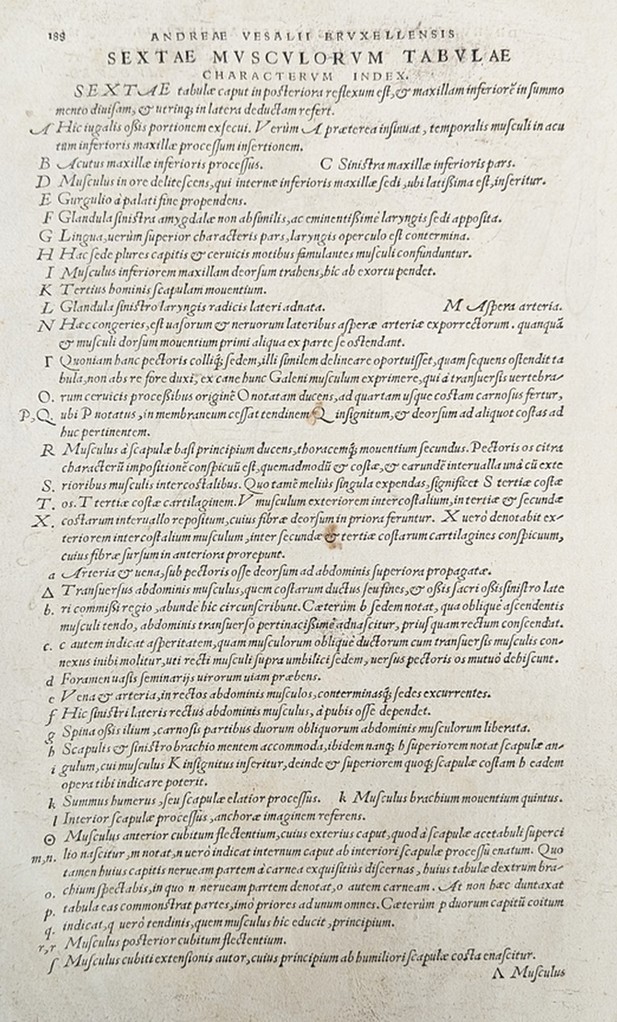 188 ANDREAE VESALII BRVXELLENSIS
SEXTAE MVSCVLORVM TABVLAE
CHARACTERVM INDEX.
SEXTAE tabulæ caput in posteriora reflexum est, & maxillam inferiorē in summo
mento diuisam, & utrinq; in latera deductam refert.
A Hic iugalis oßis portionem exsecui. Verùm A præterea insinuat, temporalis musculi in acu
tum inferioris maxillæ processum insertionem.
B Acutus maxillæ inferioris processus. C Sinistra maxillæ inferioris pars.
D Musculus in ore delitescens, qui internæ inferioris maxillæ sedi, ubi latißima est, inseritur.
E Gurgulio à palati fine propendens.
F Glandula sinistra amygdalæ non absimilis, ac eminentißimè laryngis sedi apposita.
G Lingua, uerùm superior characteris pars, laryngis operculo est contermina.
H Hac sede plures capitis & ceruicis motibus famulantes musculi confunduntur.
I Musculus inferiorem maxillam deorsum trahens, hic ab exortu pendet.
K Tertius hominis scapulam mouentium.
L Glandula sinistro laryngis radicis lateri adnata. M Aspera arteria.
N Hæc congeries, est uasorum & neruorum lateribus asperæ arteriæ exporrectorum. quanquā
& musculi dorsum mouentium primi aliqua ex parte se ostendant.
Γ Quoniam hanc pectoris colliq; sedem, illi similem delineare oportuisset, quam sequens ostendit ta
bula, non abs re fore duxi, ex cane hunc Galeni musculum exprimere, qui à transuersis uertebra-
O. rum ceruicis processibus originē O notatam ducens, ad quartam usque costam carnosus fertur,
P, Q ubi P notatus, in membraneum cessat tendinem Q insignitum, & deorsum ad aliquot costas ad
huc pertinentem.
R Musculus à scapulæ basi principium ducens, thoracemq́; mouentium secundus. Pectoris os citra
characterū impositionē conspicuū est, quemadmodū & costæ, & earundē interualla unà cū exte
S. rioribus musculis intercostalibus. Quo tamē meliùs singula expendas, significet S tertiæ costæ
T. os. T tertiæ costæ cartilaginem. V musculum exteriorem intercostalium, in tertiæ & secundæ
X. costarum interuallo repositum, cuius fibræ deorsum in priora feruntur. X uerò denotabit ex-
teriorem intercostalium musculum, inter secundæ & tertiæ costarum cartilagines conspicuum,
cuius fibræ sursum in anteriora prorepunt.
a Arteria & uena, sub pectoris osse deorsum ad abdominis superiora propagatæ.
Δ Transuersus abdominis musculus, quem costarum ductus seu fines, & oßis sacri oßis sinistro late
b. ri commißi regio, abunde hic circunscribunt. Cæterùm b sedem notat, qua obliquè ascendentis
musculi tendo, abdominis transuerso pertinacißimè adnascitur, priusquam rectum conscendat.
c. c autem indicat asperitatem, quam musculorum obliquè ductorum cum transuersis musculis con-
nexus inibi molitur, uti recti musculi supra umbilici sedem, uersus pectoris os mutuò dehiscunt.
d Foramen uasis seminarijs uirorum uiam præbens.
e Vena & arteria, in rectos abdominis musculos, conterminasq́; sedes excurrentes.
f Hic sinistri lateris rectus abdominis musculus, à pubis osse dependet.
g Spina oßis ilium, carnosis partibus duorum obliquorum abdominis musculorum liberata.
h Scapulis & sinistro brachio mentem accommoda, ibidem nanq; h superiorem notat scapulæ an-
i gulum, cui musculus K insignitus inseritur, deinde & superiorem quoq; scapulæ costam h eadem
opera tibi indicare poterit.
k Summus humerus, seu scapulæ elatior processus. k Musculus brachium mouentium quintus.
l Interior scapulæ processus, anchoræ imaginem referens.
Θ Musculus anterior cubitum flectentium, cuius exterius caput, quod à scapulæ acetabuli superci
m, n. lio nascitur, m notat, n uerò indicat internum caput ab interiori scapulæ processu enatum. Quo
tamen huius capitis nerueam partem à carnea exquisitiùs discernas, huius tabulæ dextrum bra-
o. chium spectabis, in quo n nerueam partem denotat, o autem carneam. At non hæc duntaxat
p. tabula eas commonstrat partes, imò priores ad unum omnes. Cæterùm p duorum capitū coitum
q. indicat, q uerò tendinis, quem musculus hic educit, principium.
r, r Musculus posterior cubitum flectentium.
ſ Musculus cubiti extensionis autor, cuius principium ab humiliori scapulæ costa enascitur.
Λ Musculus